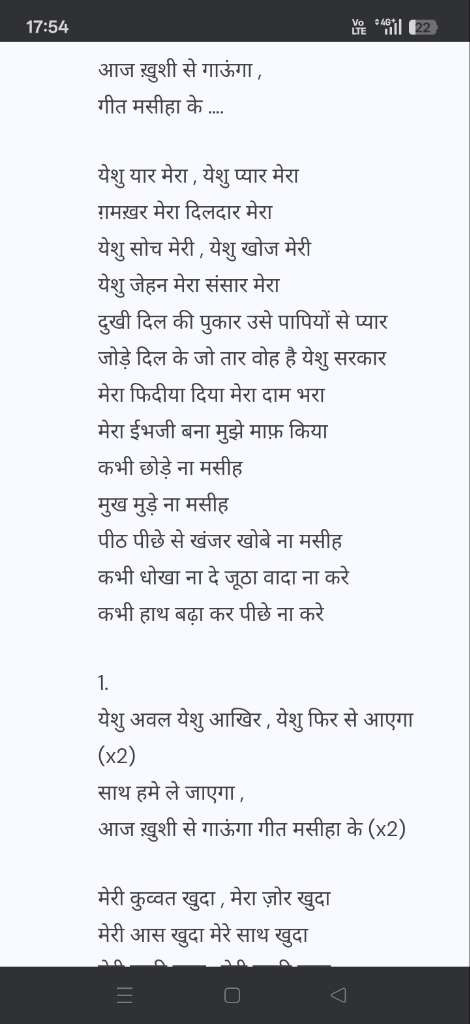 17:54
Vo LTE 4G+ 22
आज ख़ुशी से गाऊंगा ,
गीत मसीहा के ....
येशु यार मेरा , येशु प्यार मेरा
ग़मख़र मेरा दिलदार मेरा
येशु सोच मेरी , येशु खोज मेरी
येशु जेहन मेरा संसार मेरा
दुखी दिल की पुकार उसे पापियों से प्यार
जोड़े दिल के जो तार वोह है येशु सरकार
मेरा फिदीया दिया मेरा दाम भरा
मेरा ईभजी बना मुझे माफ़ किया
कभी छोड़े ना मसीह
मुख मुड़े ना मसीह
पीठ पीछे से खंजर खोबे ना मसीह
कभी धोखा ना दे जूठा वादा ना करे
कभी हाथ बढ़ा कर पीछे ना करे
1.
येशु अवल येशु आखिर , येशु फिर से आएगा
(x2)
साथ हमे ले जाएगा ,
आज ख़ुशी से गाऊंगा गीत मसीहा के (x2)
मेरी कुव्वत खुदा , मेरा ज़ोर खुदा
मेरी आस खुदा मेरे साथ खुदा